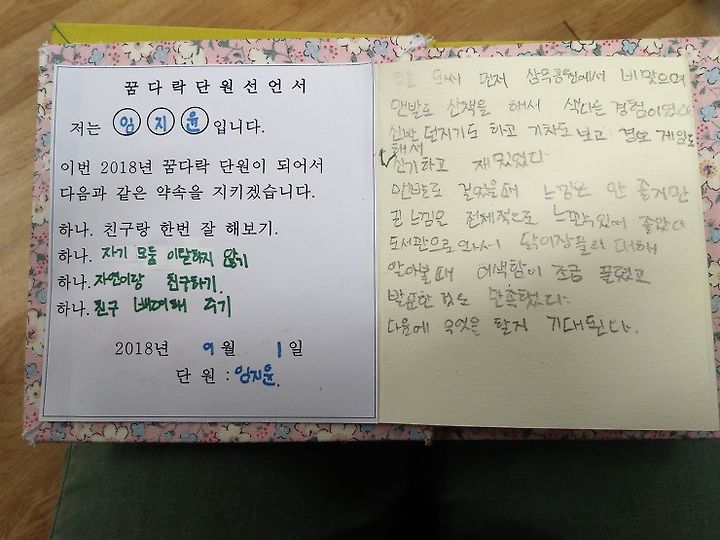 꿈다락단원선언서
저는 임지윤 입니다.
이번 2018년 꿈다락 단원이 되어서
다음과 같은 약속을 지키겠습니다.
하나. 친구랑 한번 잘 해보기.
하나. 자기 모둠 이탈하지 않기
하나. 자연이랑 친구하기.
하나. 친구 배려해 주기
2018년 9월 1일
단 원 : 임지윤.
먼저 삼무공원에서 비맞으며
맨발로 산책을 해서 색다른 경험이었다
신발 던지기도 하고 기차도 보고 게임도
해서
신기하고 재밌었다.
맨발로 걸었을때 느낌은 안 좋지만
느낌은 전체적으로 느낄수있어 좋았다
도서관으로 와서 대해
알아볼때 어색함이 조금 풀렸고
발표한 것도 만족했다.
다음에 무엇을 할지 기대된다.